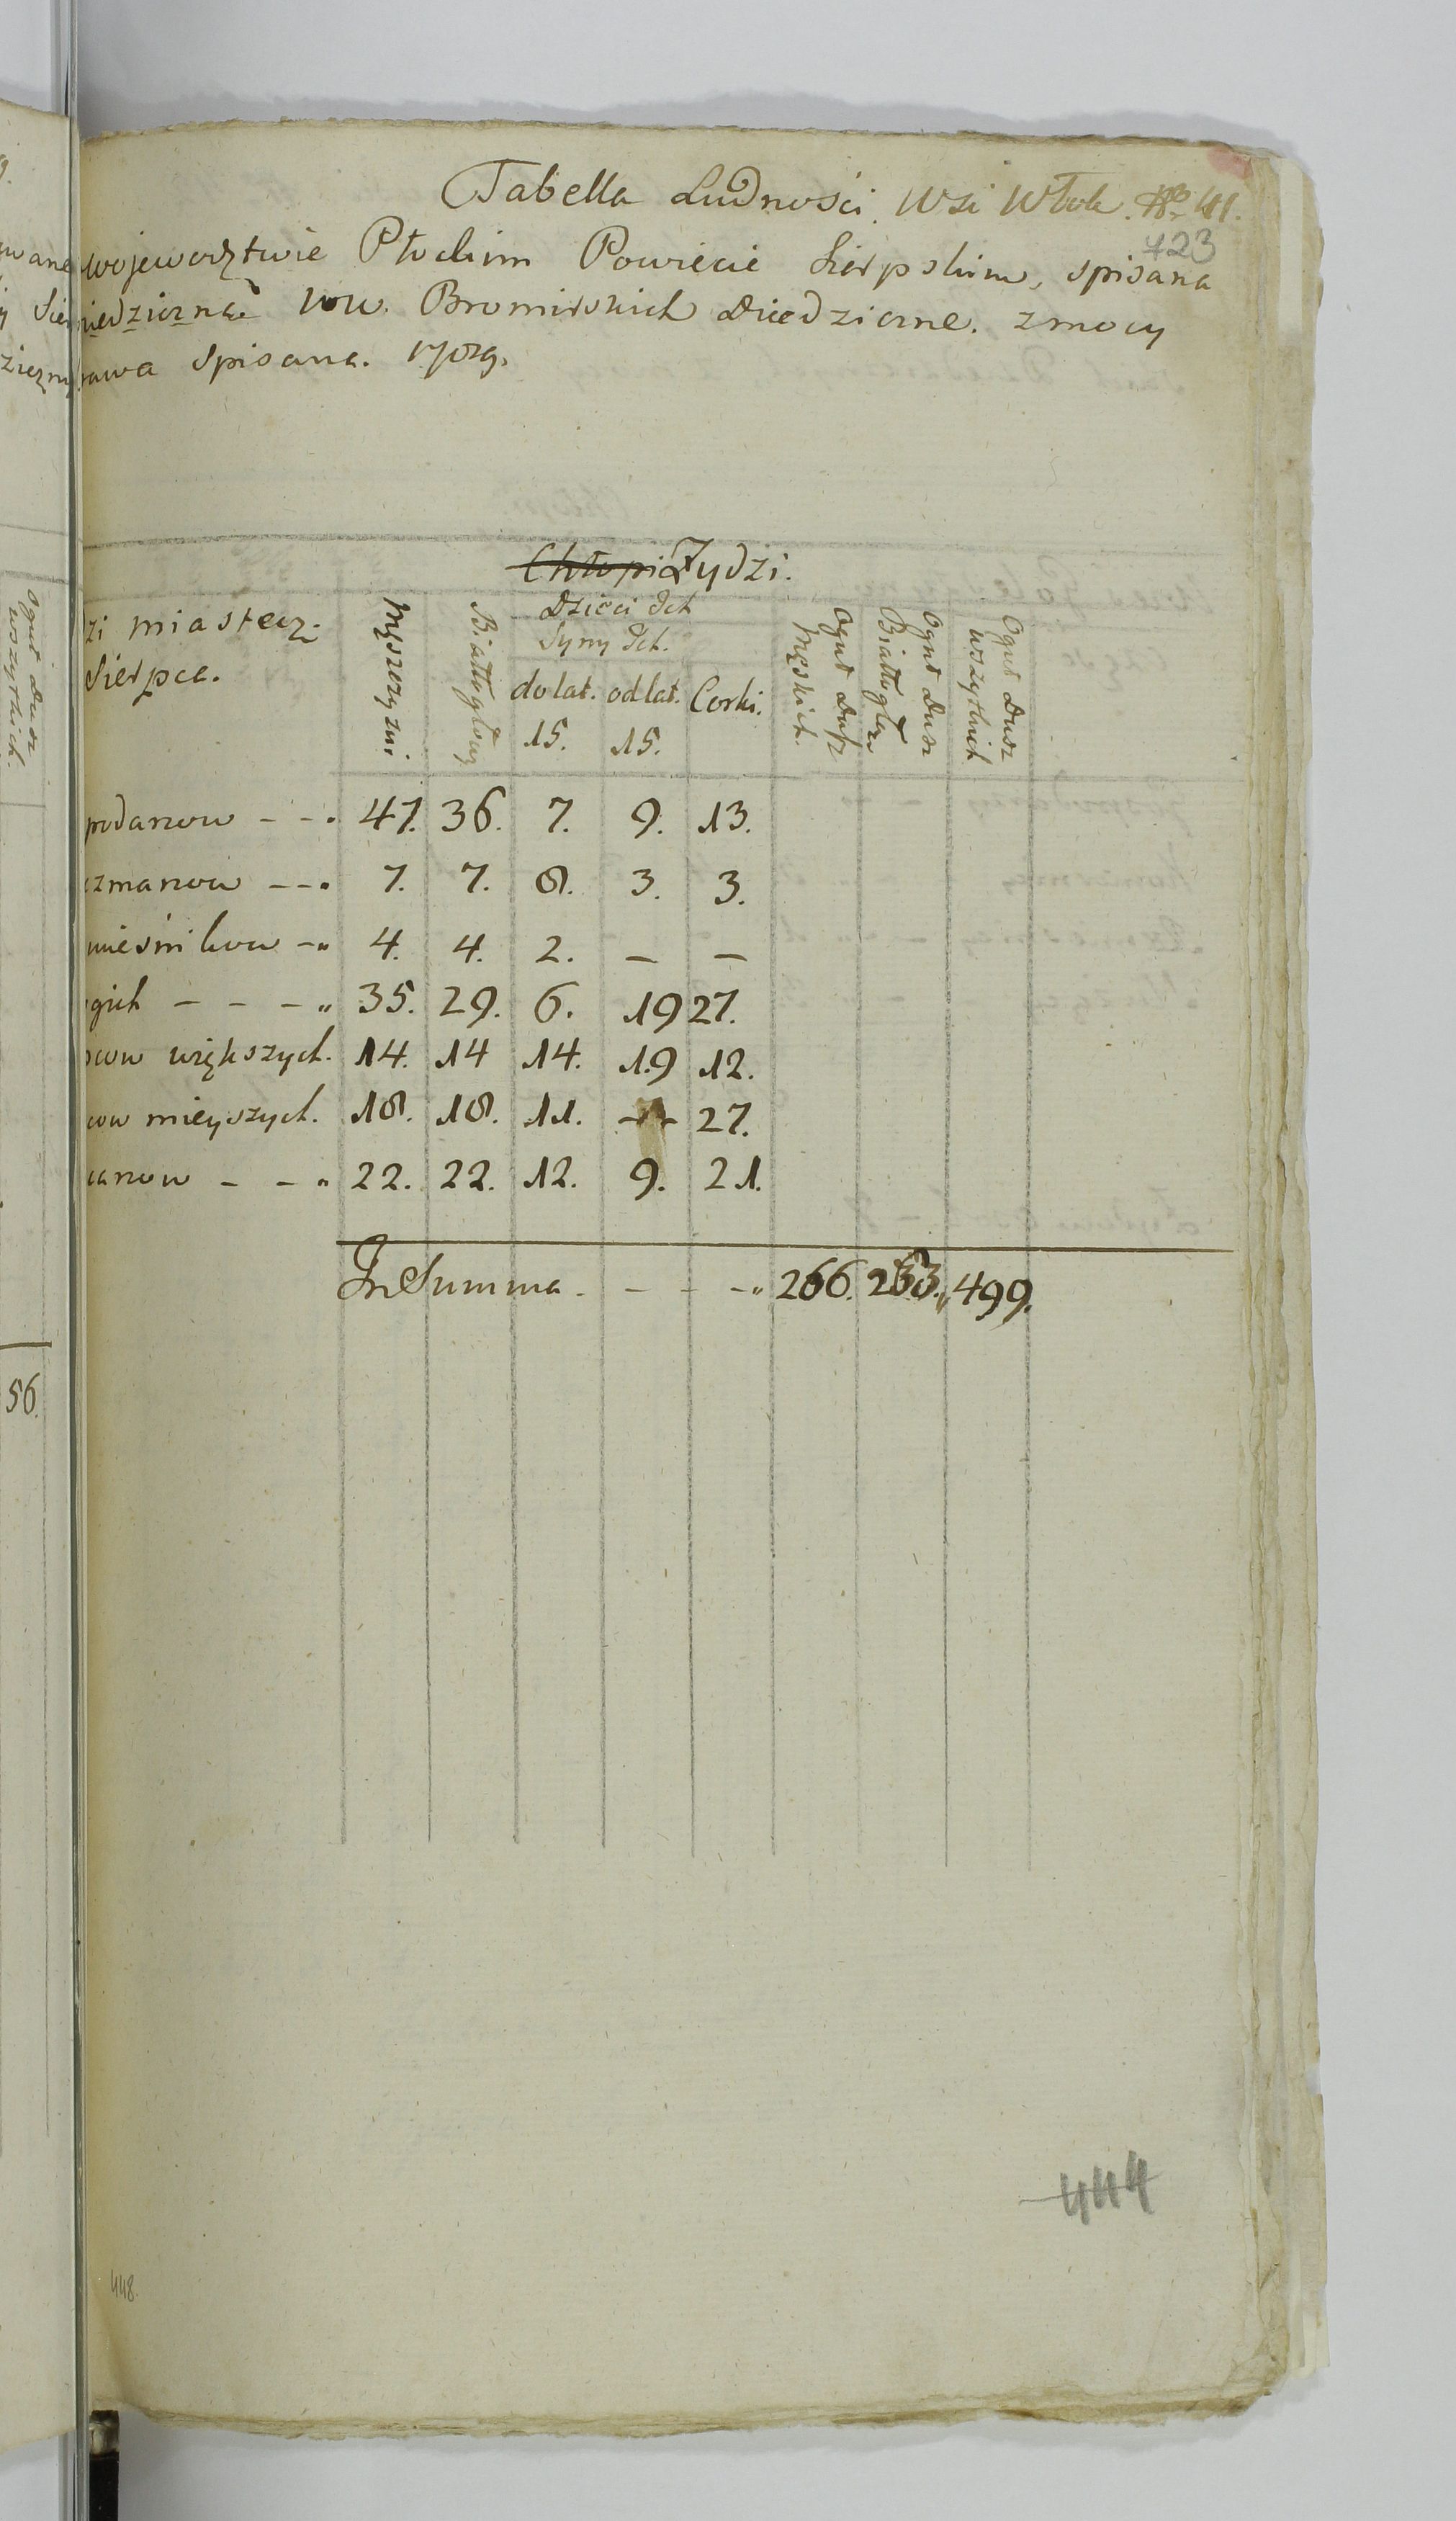 Tabella Ludności Wsi Włok. No 411.
423
wojewodztwie Płockim Powiecie Sierpskim, spisana
Bromirskich Dziedziczne. zmocy
rawa Spisana. 1789.
Chłopi Żydzi.
zi miastecz.
Sierpca.
Męszczyzni
Białogłowy
Dzieci Ich
Syny Ich.
do lat. 15.
od lat. 15.
Corki.
Oguł Dusz Męskich.
Oguł Dusz Białogłow
Oguł Dusz wszytkich
podarzow - - . 47. 36. 7. 9. 13.
czmarzow - - . 7. 7. 8. 3. 3.
mieśnikow - „ 4. 4. 2. — —
gich - - - „ 35. 29. 6. 19 27.
cow większych. 14. 14 14. 19 12.
cow mieyszych. 18. 18. 11. 27.
arzow - - „ 22. 22. 12. 9. 21.
In Summa - - - „ 266. 233. „ 499.
56.
444
448.